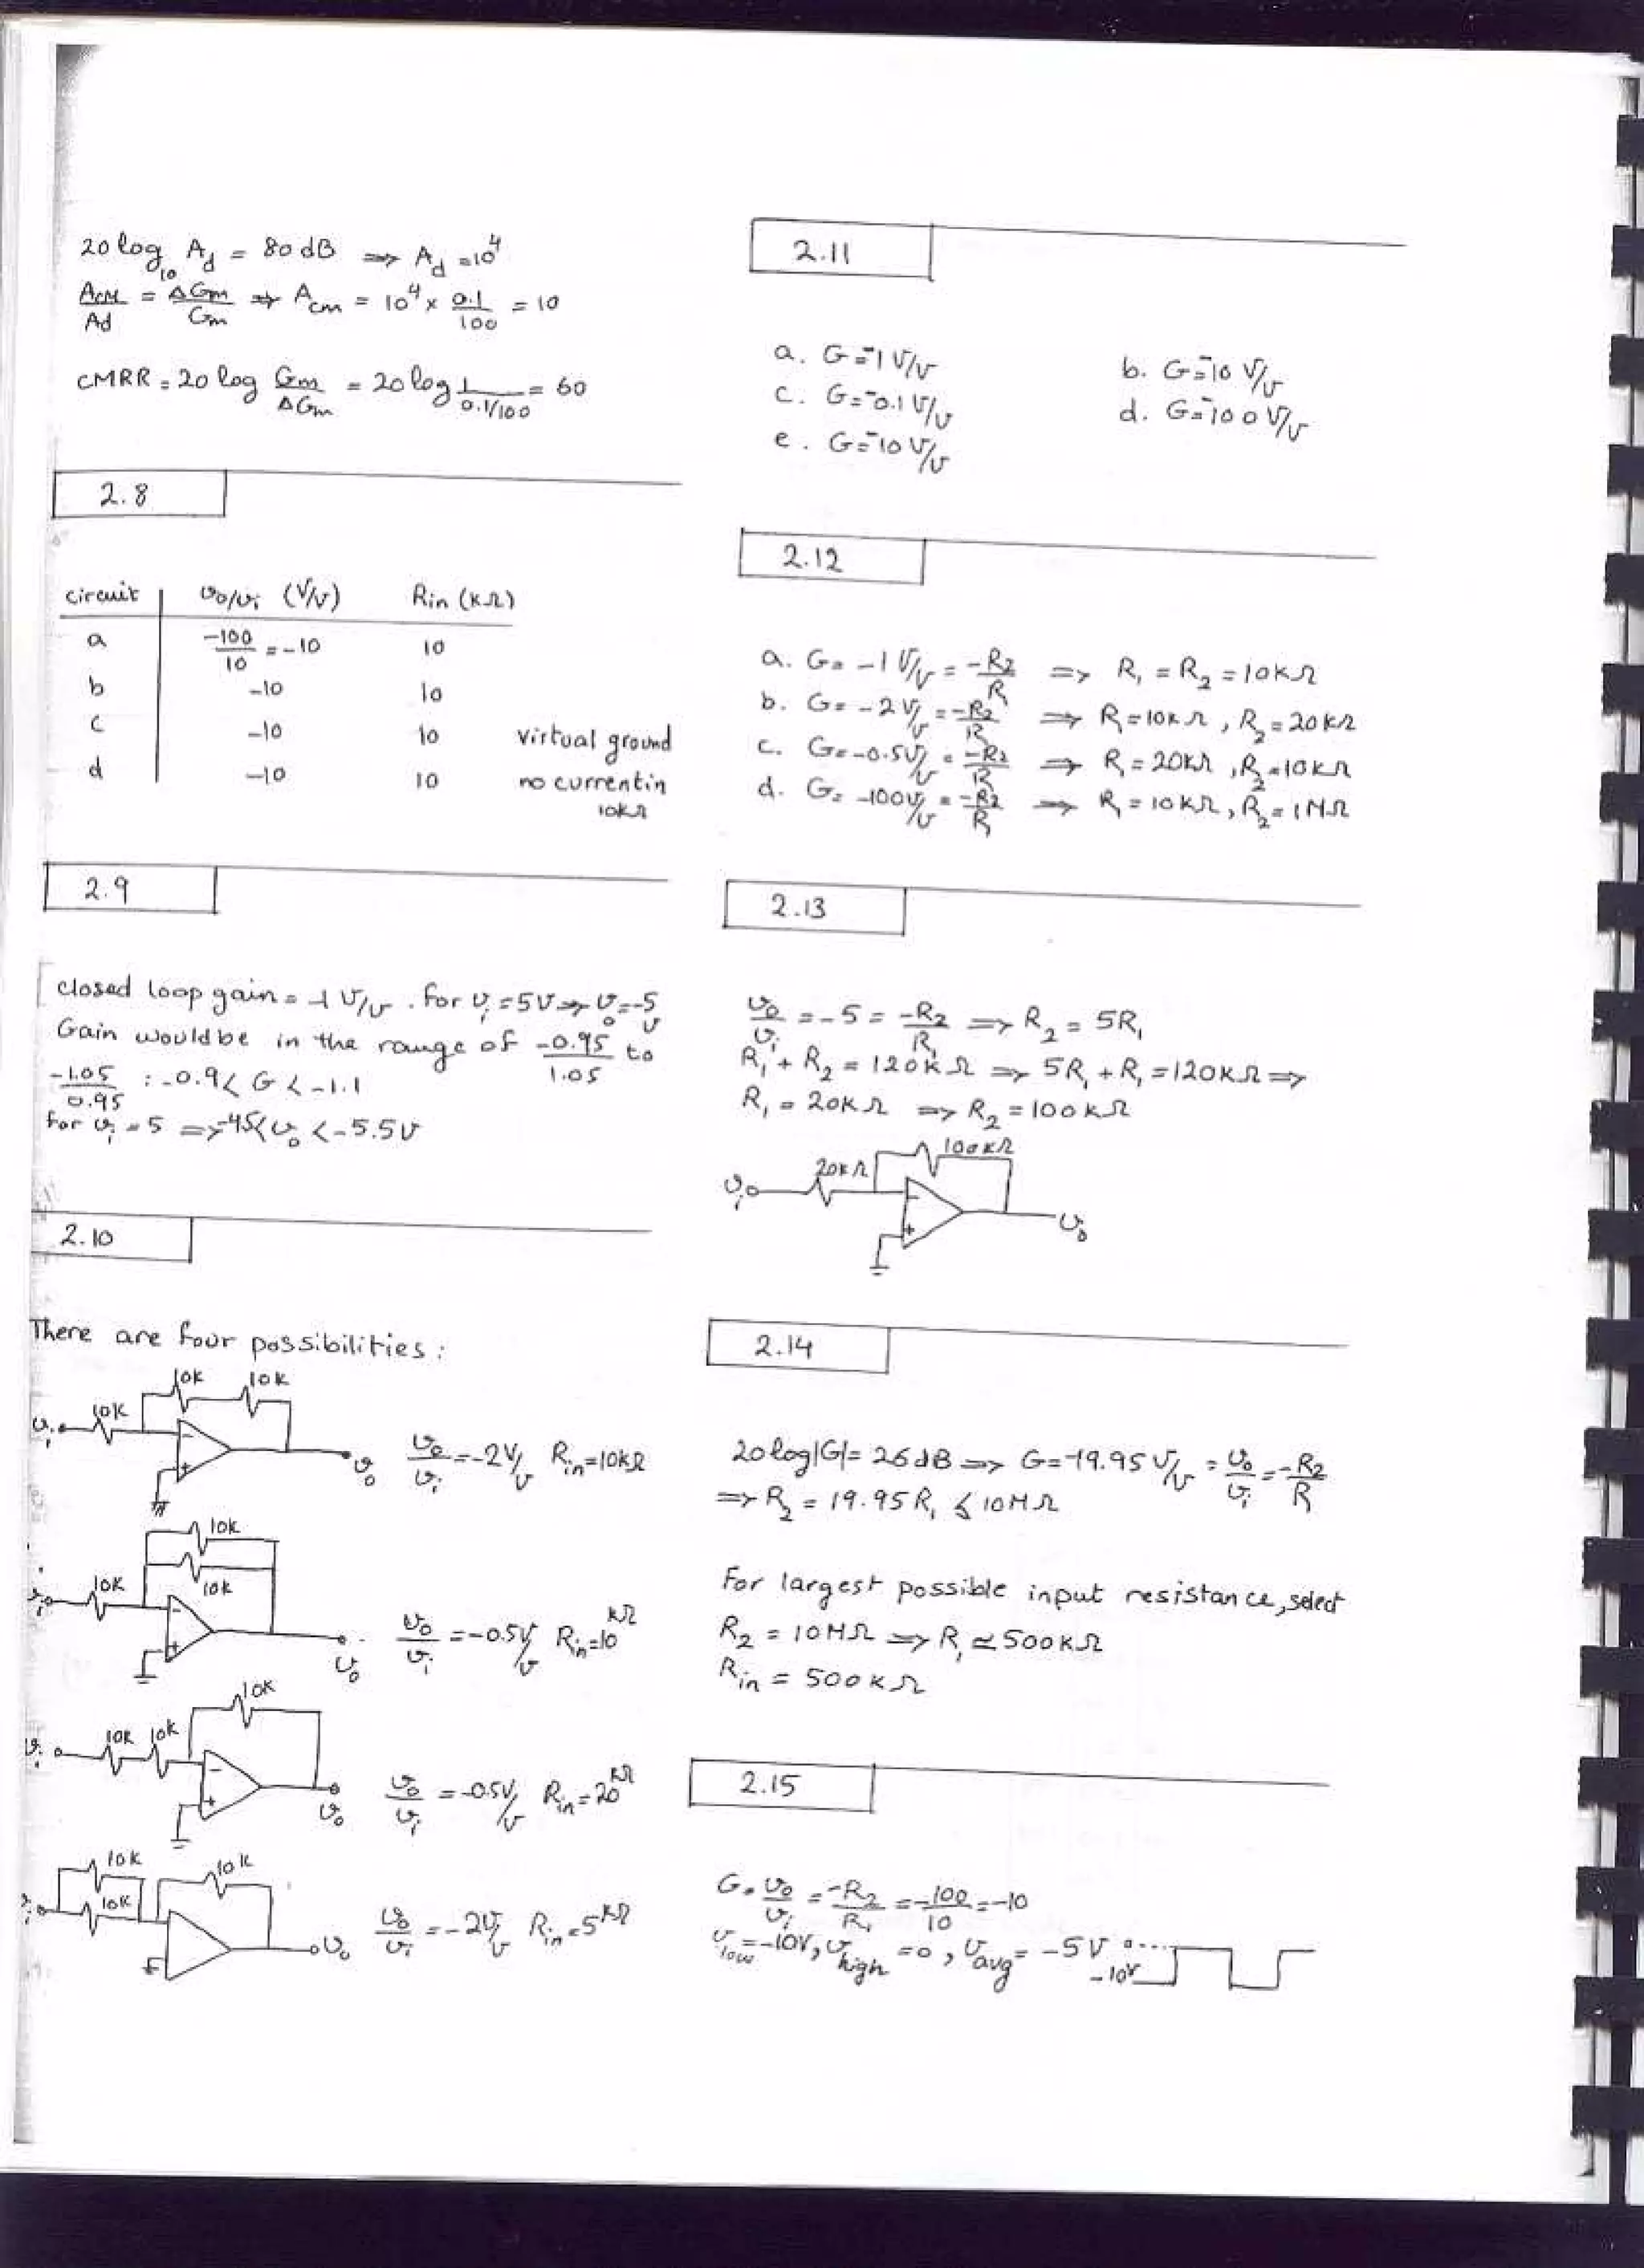 20 log₁₀ A_d = 80 dB ⇒ A_d = 10⁴
A_CM/A_d = ΔG_m/G_m ⇒ A_cm = 10⁴ × 0.1/100 = 10
CMRR = 20 log G_m/ΔG_m = 20 log 1/(0.1/100) = 60
2.8
circuit υo/υi (V/V) Rin (KΩ)
a -100/10 = -10 10
b -10 10
c -10 10 virtual ground
d -10 10 no current in
10KΩ
2.9
closed loop gain = -1 V/V. For υi = 5V ⇒ υo = -5 V
Gain would be in the range of -0.95/1.05 to
-1.05/0.95 : -0.9 < G < -1.1
For υi = 5 ⇒ -45 < υo < -5.5V
2.10
There are four possibilities :
10K 10K
10K
υi
υo
υo/υi = -2 V/V Rin = 10KΩ
10K
10K
10K
υi
υo
υo/υi = -0.5 V/V Rin = 10 KΩ
10K
10K 10K
υi
υo
υo/υi = -0.5 V/V Rin = 20 KΩ
10K 10K
10K
υo
υo/υi = -2 V/V Rin = 5 KΩ
2.11
a. G = -1 V/V b. G = -10 V/V
c. G = -0.1 V/V d. G = -100 V/V
e. G = -10 V/V
2.12
a. G = -1 V/V = -R₂/R₁ ⇒ R₁ = R₂ = 10KΩ
b. G = -2 V/V = -R₂/R₁ ⇒ R₁ = 10KΩ, R₂ = 20KΩ
c. G = -0.5 V/V = -R₂/R₁ ⇒ R₁ = 20KΩ, R₂ = 10KΩ
d. G = -100 V/V = -R₂/R₁ ⇒ R₁ = 10KΩ, R₂ = 1MΩ
2.13
υo/υi = -5 = -R₂/R₁ ⇒ R₂ = 5R₁
R₁ + R₂ = 120KΩ ⇒ 5R₁ + R₁ = 120KΩ ⇒
R₁ = 20KΩ ⇒ R₂ = 100KΩ
100KΩ
20KΩ
υi
υo
2.14
20 log|G| = 26 dB ⇒ G = -19.95 V/V = υo/υi = -R₂/R
⇒ R₂ = 19.95 R₁ ≤ 10MΩ
For largest possible input resistance, select
R₂ = 10MΩ ⇒ R₁ ≃ 500KΩ
Rin = 500KΩ
2.15
G = υo/υi = -R₂/R₁ = -100/10 = -10
υlow = -10V, υhigh = 0, υavg = -5V 0
-10V